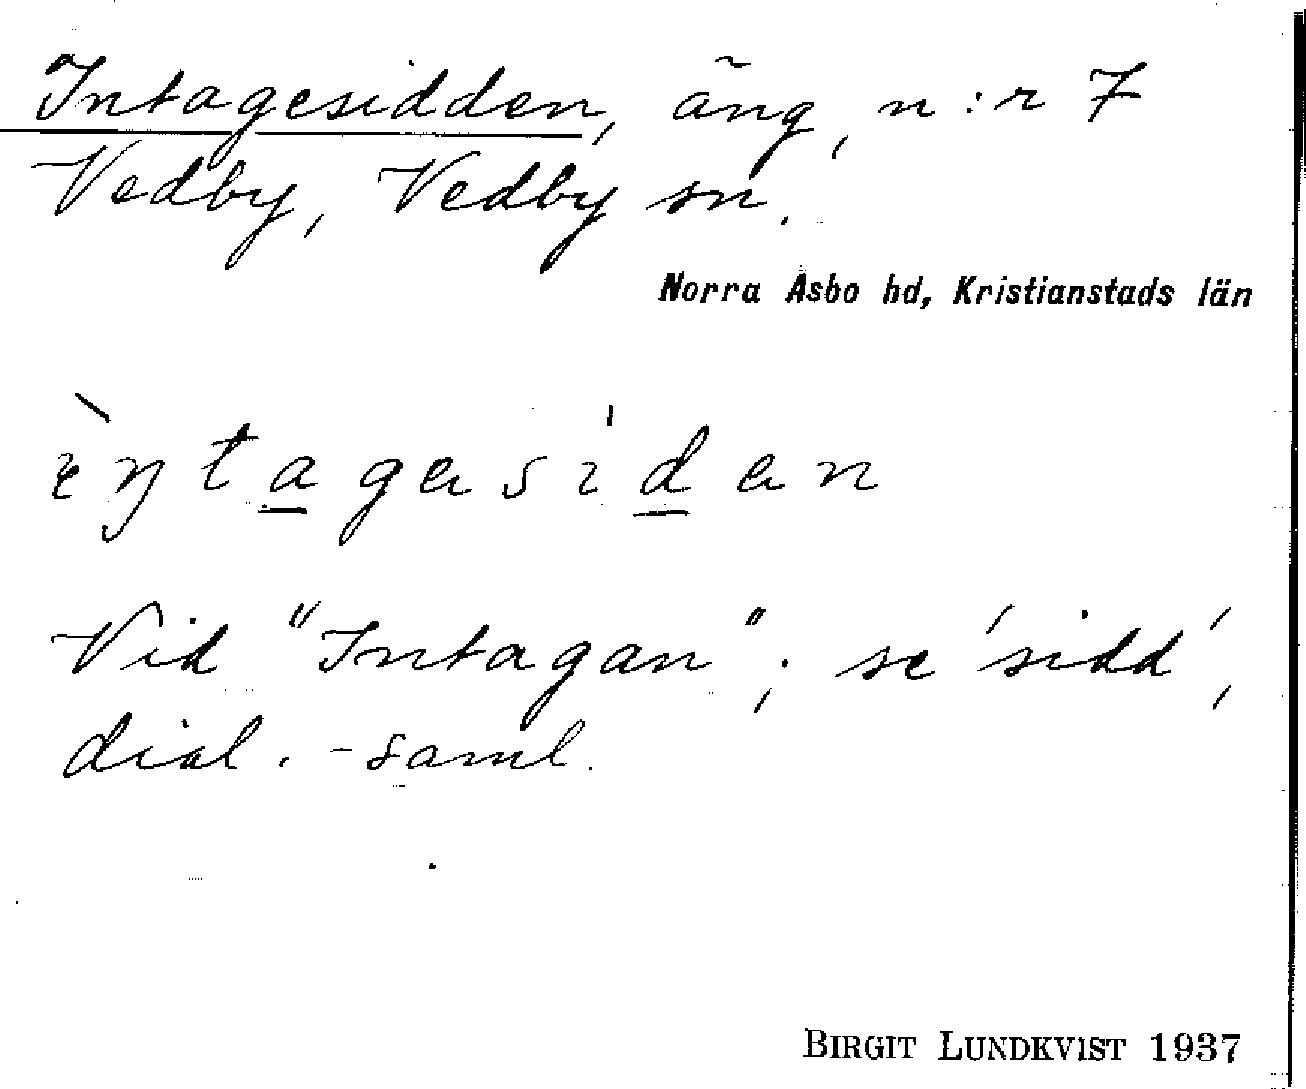 Intagesidden, äng, n:r 7
Vedby, Vedby sn.
Norra Åsbo hd, Kristianstads län
Vid "Intagan"; se 'sidd',
dial.-saml.
BIRGIT LUNDKVIST 1937